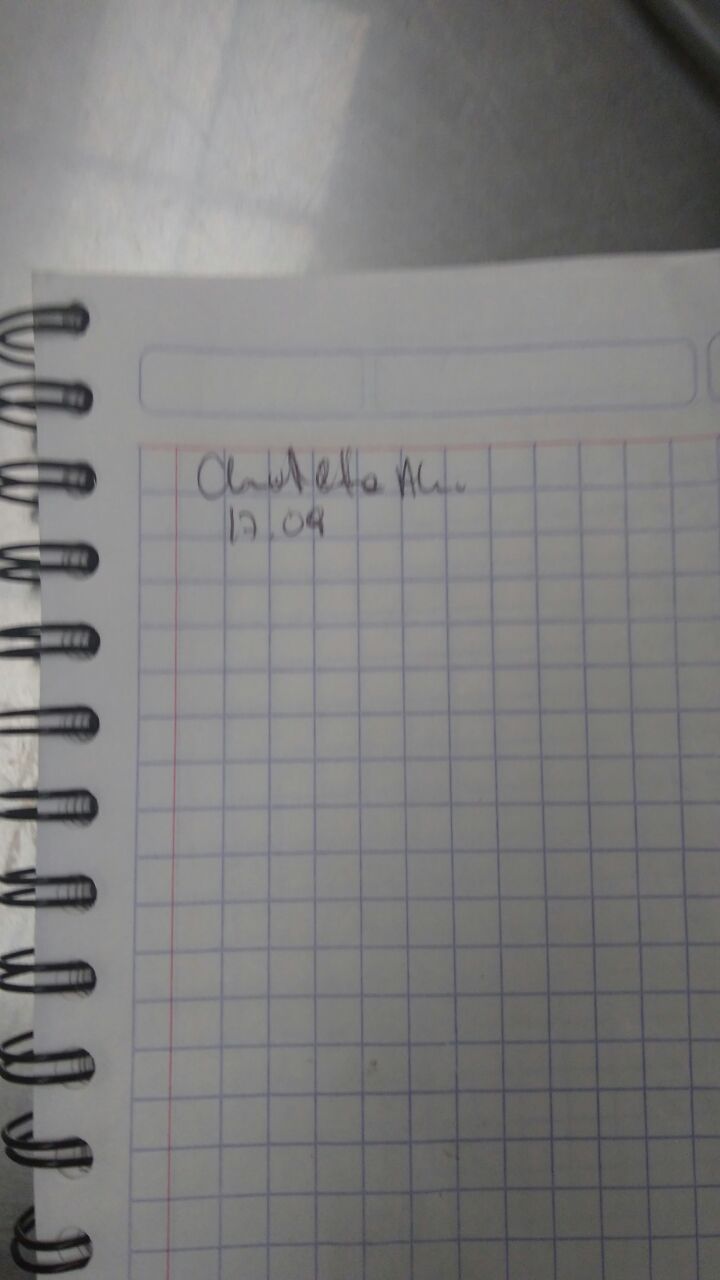 Chuleta Ah.
17.09